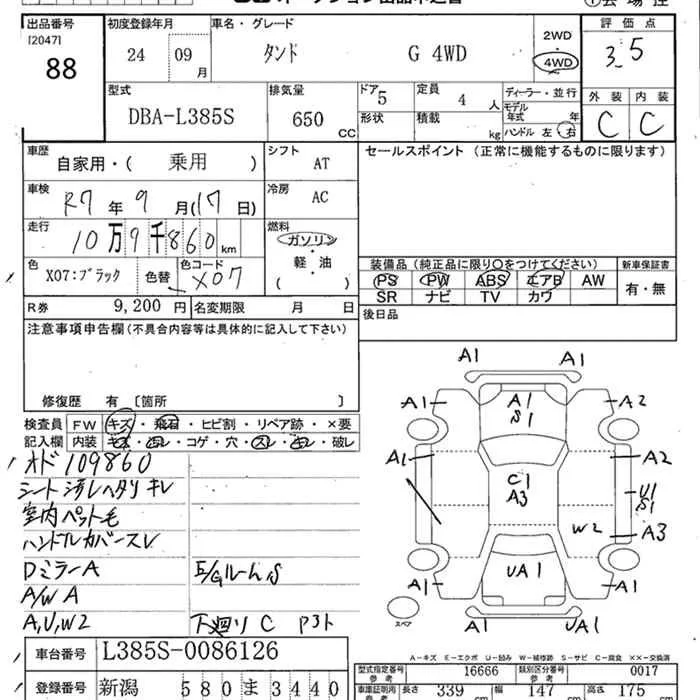 出品番号 初度登録年月 車名・グレード 評価点
[2047]
88 24 09月 タンド G 4WD 2WD 4WD 3.5
型式 排気量 ドア 定員 ディーラー・並行 外装 内装
DBA-L385S 650 CC 5 4 人 モデル年式 年
形状 積載 kg ハンドル 左・右 C C
車歴 自家用・( 乗用 ) シフト AT セールスポイント (正常に機能するものに限ります)
車検 R7年 9月(17日) 冷房 AC
走行 10万9千860km 燃料 ガソリン・軽・油 ( )
色 X07:ブラック 色替 色コード X07
装備品(純正品に限り○をつけてください) 新車保証書
PS PW ABS エアB AW 有・無
SR ナビ TV カワ
R券 9,200円 名変期限 月 日 後日品
注意事項申告欄(不具合内容等は具体的に記入して下さい)
修復歴 有〔箇所 〕
検査員 FW キズ・飛石・ヒビ割・リペア跡・×要
記入欄 内装 キズ・汚レ・コゲ・穴・スレ・キレ・破レ
オド109860
シート汚レヘタリキレ
室内ペット毛
ハンドルカバースレ
DミラーA
E/Gルーム S
A/W A
A,U,W2 下廻り C P3ト
A1 A1
A1 A1 S1 A2
A1 C1 A3 A2
U1 S1
W2 A3
A1 UA1 A1
A1 UA1
スペア
A-キズ E-エクボ U-凹み W-補修跡 S-サビ C-腐食 ××-交換済
車台番号 L385S-0086126
型式指定番号 参考 16666 類別区分番号 参考 0017
登録番号 新潟 580 ま 3440
車庫証明用 参考 長さ 339 cm 幅 147 cm 高さ 175 cm